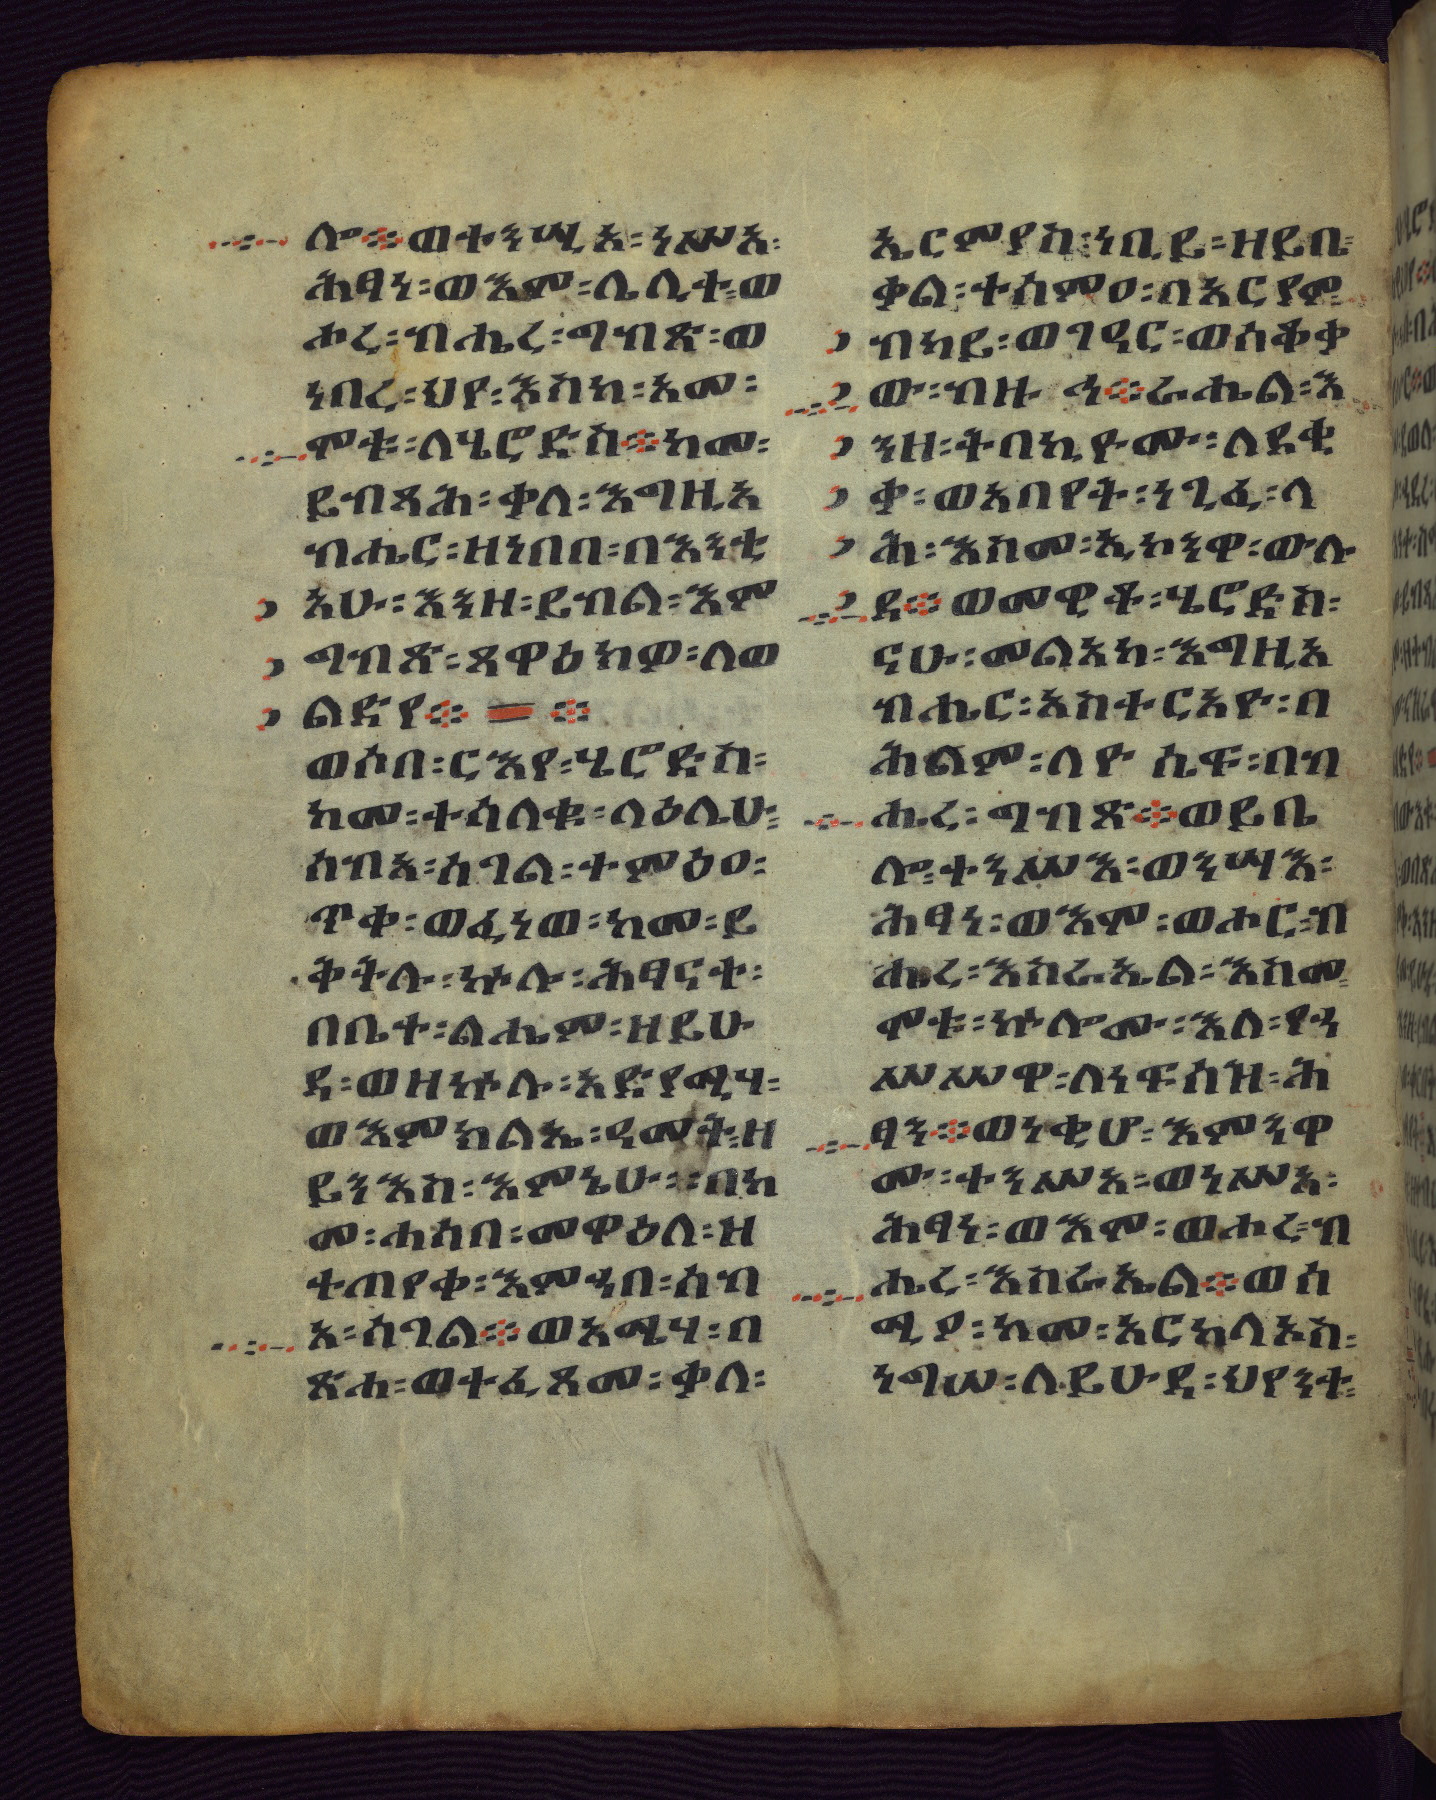 ሎ፨ወተንሢአ፡ነሥአ፡
ሕፃነ፡ወእሞ፡ሌሊተ፡ወ
ሖረ፡ብሔረ፡ግብጽ፡ወ
ነበረ፡ህየ፡እስከ፡አመ፡
ሞቱ፡ለሄሮድስ፨ከመ፡
ይብጻሕ፡ቃለ፡እግዚአ
ብሔር፡ዘነበበ፡በእንቲ
አሁ፡እንዘ፡ይብል፡እም
ግብጽ፡ጸዋዕክዎ፡ለወ
ልድየ፨ ፨
ወሶበ፡ርእየ፡ሄሮድስ፡
ከመ፡ተሳለቁ፡ላዕሌሁ፡
ሰብአ፡ሰገል፡ተምዕዐ፡
ጥቀ፡ወፈነወ፡ከመ፡ይ
ቅትሉ፡ኵሉ፡ሕፃናተ፡
በቤተ፡ልሔም፡ዘይሁ
ዳ፡ወዘኵሉ፡አድያሚሃ፡
ወእምክልኤ፡ዓመት፡ዘ
ይንእስ፡እምኔሁ፡በከ
መ፡ሐሰበ፡መዋዕለ፡ዘ
ተጠየቀ፡እምኀበ፡ሰብ
አ፡ሰገል፨ወአሜሃ፡በ
ጽሐ፡ወተፈጸመ፡ቃለ፡
ኤርምያስ፡ነቢይ፡ዘይቤ፡
ቃል፡ተሰምዐ፡በእርያም፡
ብካይ፡ወገዓር፡ወሰቆቃ
ው፡ብዙኅ፨ራሔል፡እ
ንዘ፡ትበኪዮሙ፡ለደቂ
ቃ፡ወአበየት፡ነጊፈ፡ላ
ሕ፡እስመ፡ኢኮንዋ፡ውሉ
ደ፨ወመዊቶ፡ሄሮድስ፡
ናሁ፡መልአከ፡እግዚአ
ብሔር፡አስተርአዮ፡በ
ሕልም፡ለዮሴፍ፡በብ
ሔረ፡ግብጽ፨ወይቤ
ሎ፡ተንሥእ፡ወንሣእ፡
ሕፃነ፡ወእሞ፡ወሖር፡ብ
ሔረ፡እስራኤል፡እስመ፡
ሞቱ፡ኵሎሙ፡እለ፡የኀ
ሥሥዋ፡ለነፍሰዝ፡ሕ
ፃን፨ወነቂሆ፡እምንዋ
ሙ፡ተንሥአ፡ወነሥአ፡
ሕፃነ፡ወእሞ፡ወሖረ፡ብ
ሔረ፡እስራኤል፨ወሰ
ሚዖ፡ከመ፡አርከላኦስ፡
ነግሠ፡ለይሁዳ፡ህየንተ፡